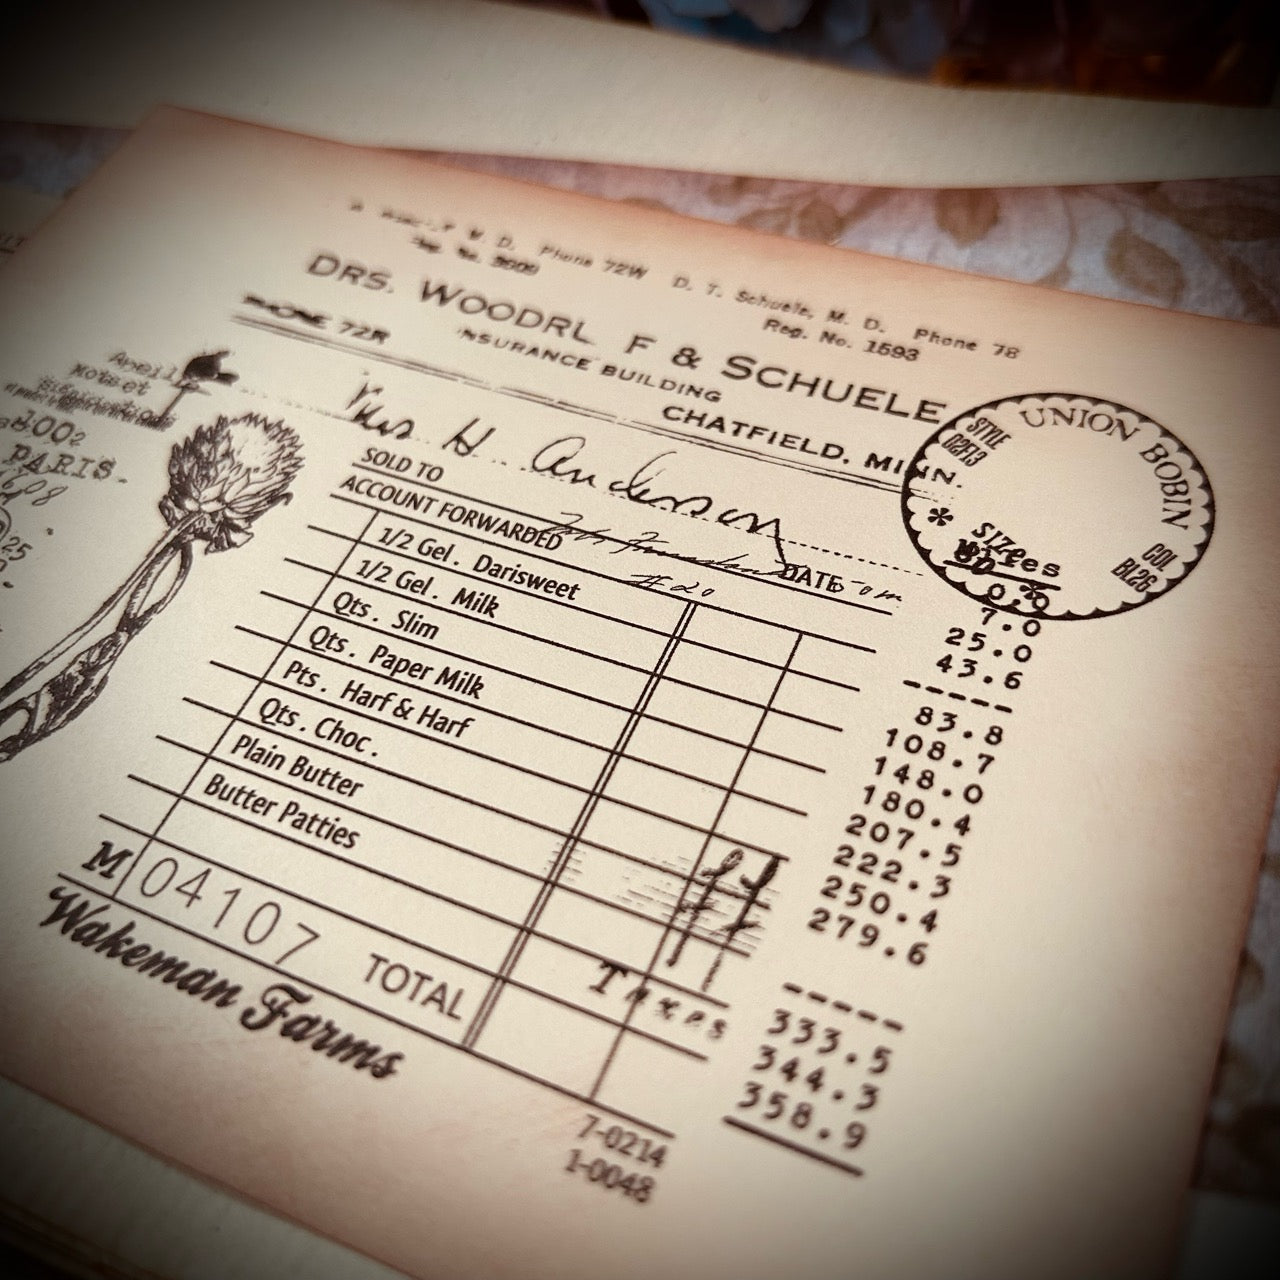 M. D. Phone 72W D. T. Schuele, M. D. Phone 78
Reg. No. 1593
DRS. WOODRL F & SCHUELE
PHONE 72R INSURANCE BUILDING
CHATFIELD, MINN.
UNION BOBIN
STYLE
C2F13
COL
BL26
* SIZes
H. Anderson
SOLD TO
ACCOUNT FORWARDED DATE
#20
1/2 Gel. Darisweet
1/2 Gel. Milk
Qts. Slim
Qts. Paper Milk
Pts. Harf & Harf
Qts. Choc.
Plain Butter
Butter Patties
M 04107 TOTAL
Wakeman Farms
Taxes
7-0214
1-0048
7.0
25.0
43.6
-----
83.8
108.7
148.0
180.4
207.5
222.3
250.4
279.6
-----
333.5
344.3
358.9
PARIS.
25